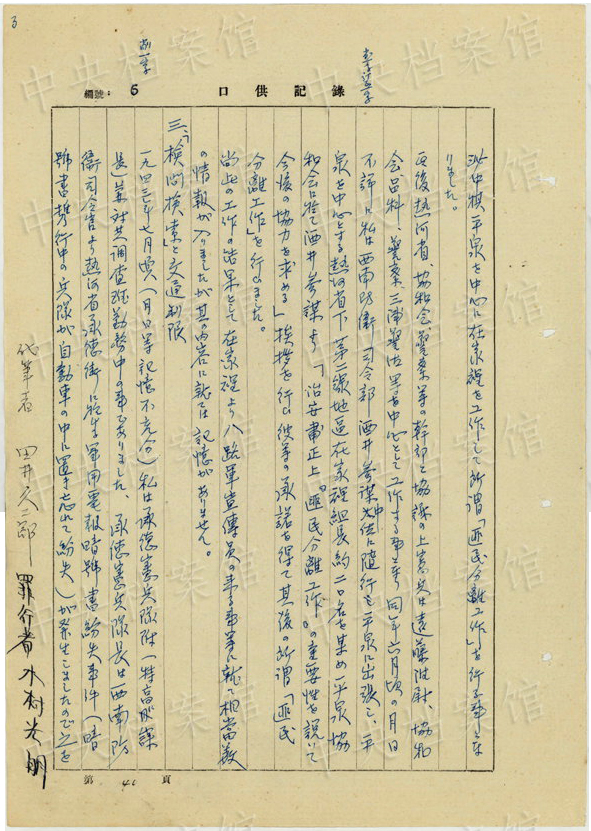 3
編號: 6
口供記錄
泌中棋平泉を中心に在家裡を工作して所謂「匪民分離工作」を行ふ事とな
りました。
其後熱河省、協和会、警察等の幹部と協議の上憲兵は遠藤准尉、協和
会品科、警察三浦警佐等を中心として工作する事となり同年六月頃の月日
不詳に私は西南防衛司令部酒井参謀中佐に隨行し平泉に出張し、平
泉を中心とする熱河省下第二線地區在家裡組長約二〇名を集め平泉協
和会に於て酒井参謀より「治安肅正上、匪民分離工作」の重要性を説いて
今後の協力を求める」挨拶を行ひ彼等の承諾を得て其後の所謂「匪民
分離工作」を行ひました。
尚此の工作の結果として在家裡より八路軍宣傳員の来る事等に就て相当数
の情報が入りましたが其の内容に就ては記憶がありません。
三、「検問検索と交通制限
一九四三年七月頃(月日等記憶不充分)私は承徳憲兵隊附(特高
長)兼対共調査班勤務中の事でありました。承徳憲兵隊長は西南防
衛司令官より熱河省承徳街に於ける軍用電報暗號書紛失事件(暗
號書携行中の兵隊が自動車の中に置き忘れて紛失)が発生しましたので之を
代筆者 田井久二郎
罪行者 木村光明
第 46 頁